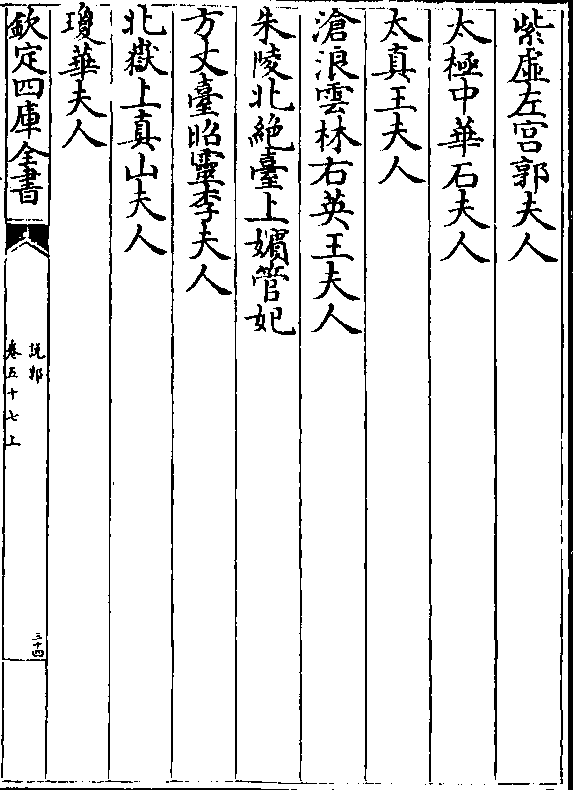 紫虛左宫郭夫人
太極中華石夫人
太真王夫人
滄浪雲林右英王夫人
朱陵北絶臺上嬪管妃
方丈臺昭靈李夫人
北嶽上真山夫人
瓊華夫人
欽定四庫全書
說郛
卷五十七上
三十四